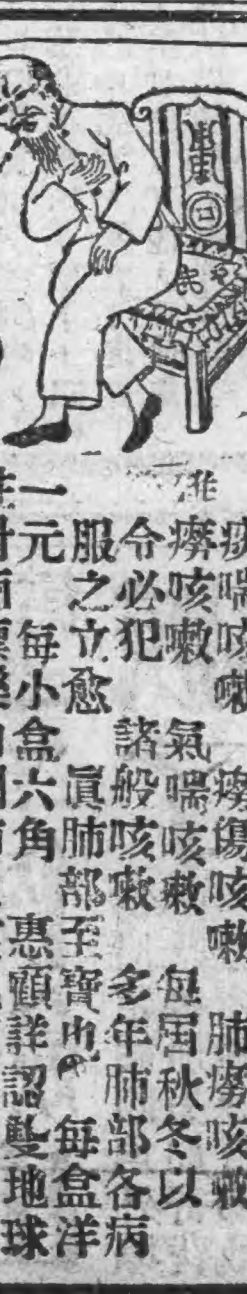 痰喘咳嗽 癆傷咳嗽 肺癆咳嗽
癆咳嗽 氣喘咳嗽 每屆秋冬以
令必犯 諸般咳嗽 多年肺部各病
服之立愈 眞肺部至寶也 每盒洋
一元 每小盒六角 惠顧詳認雙地球